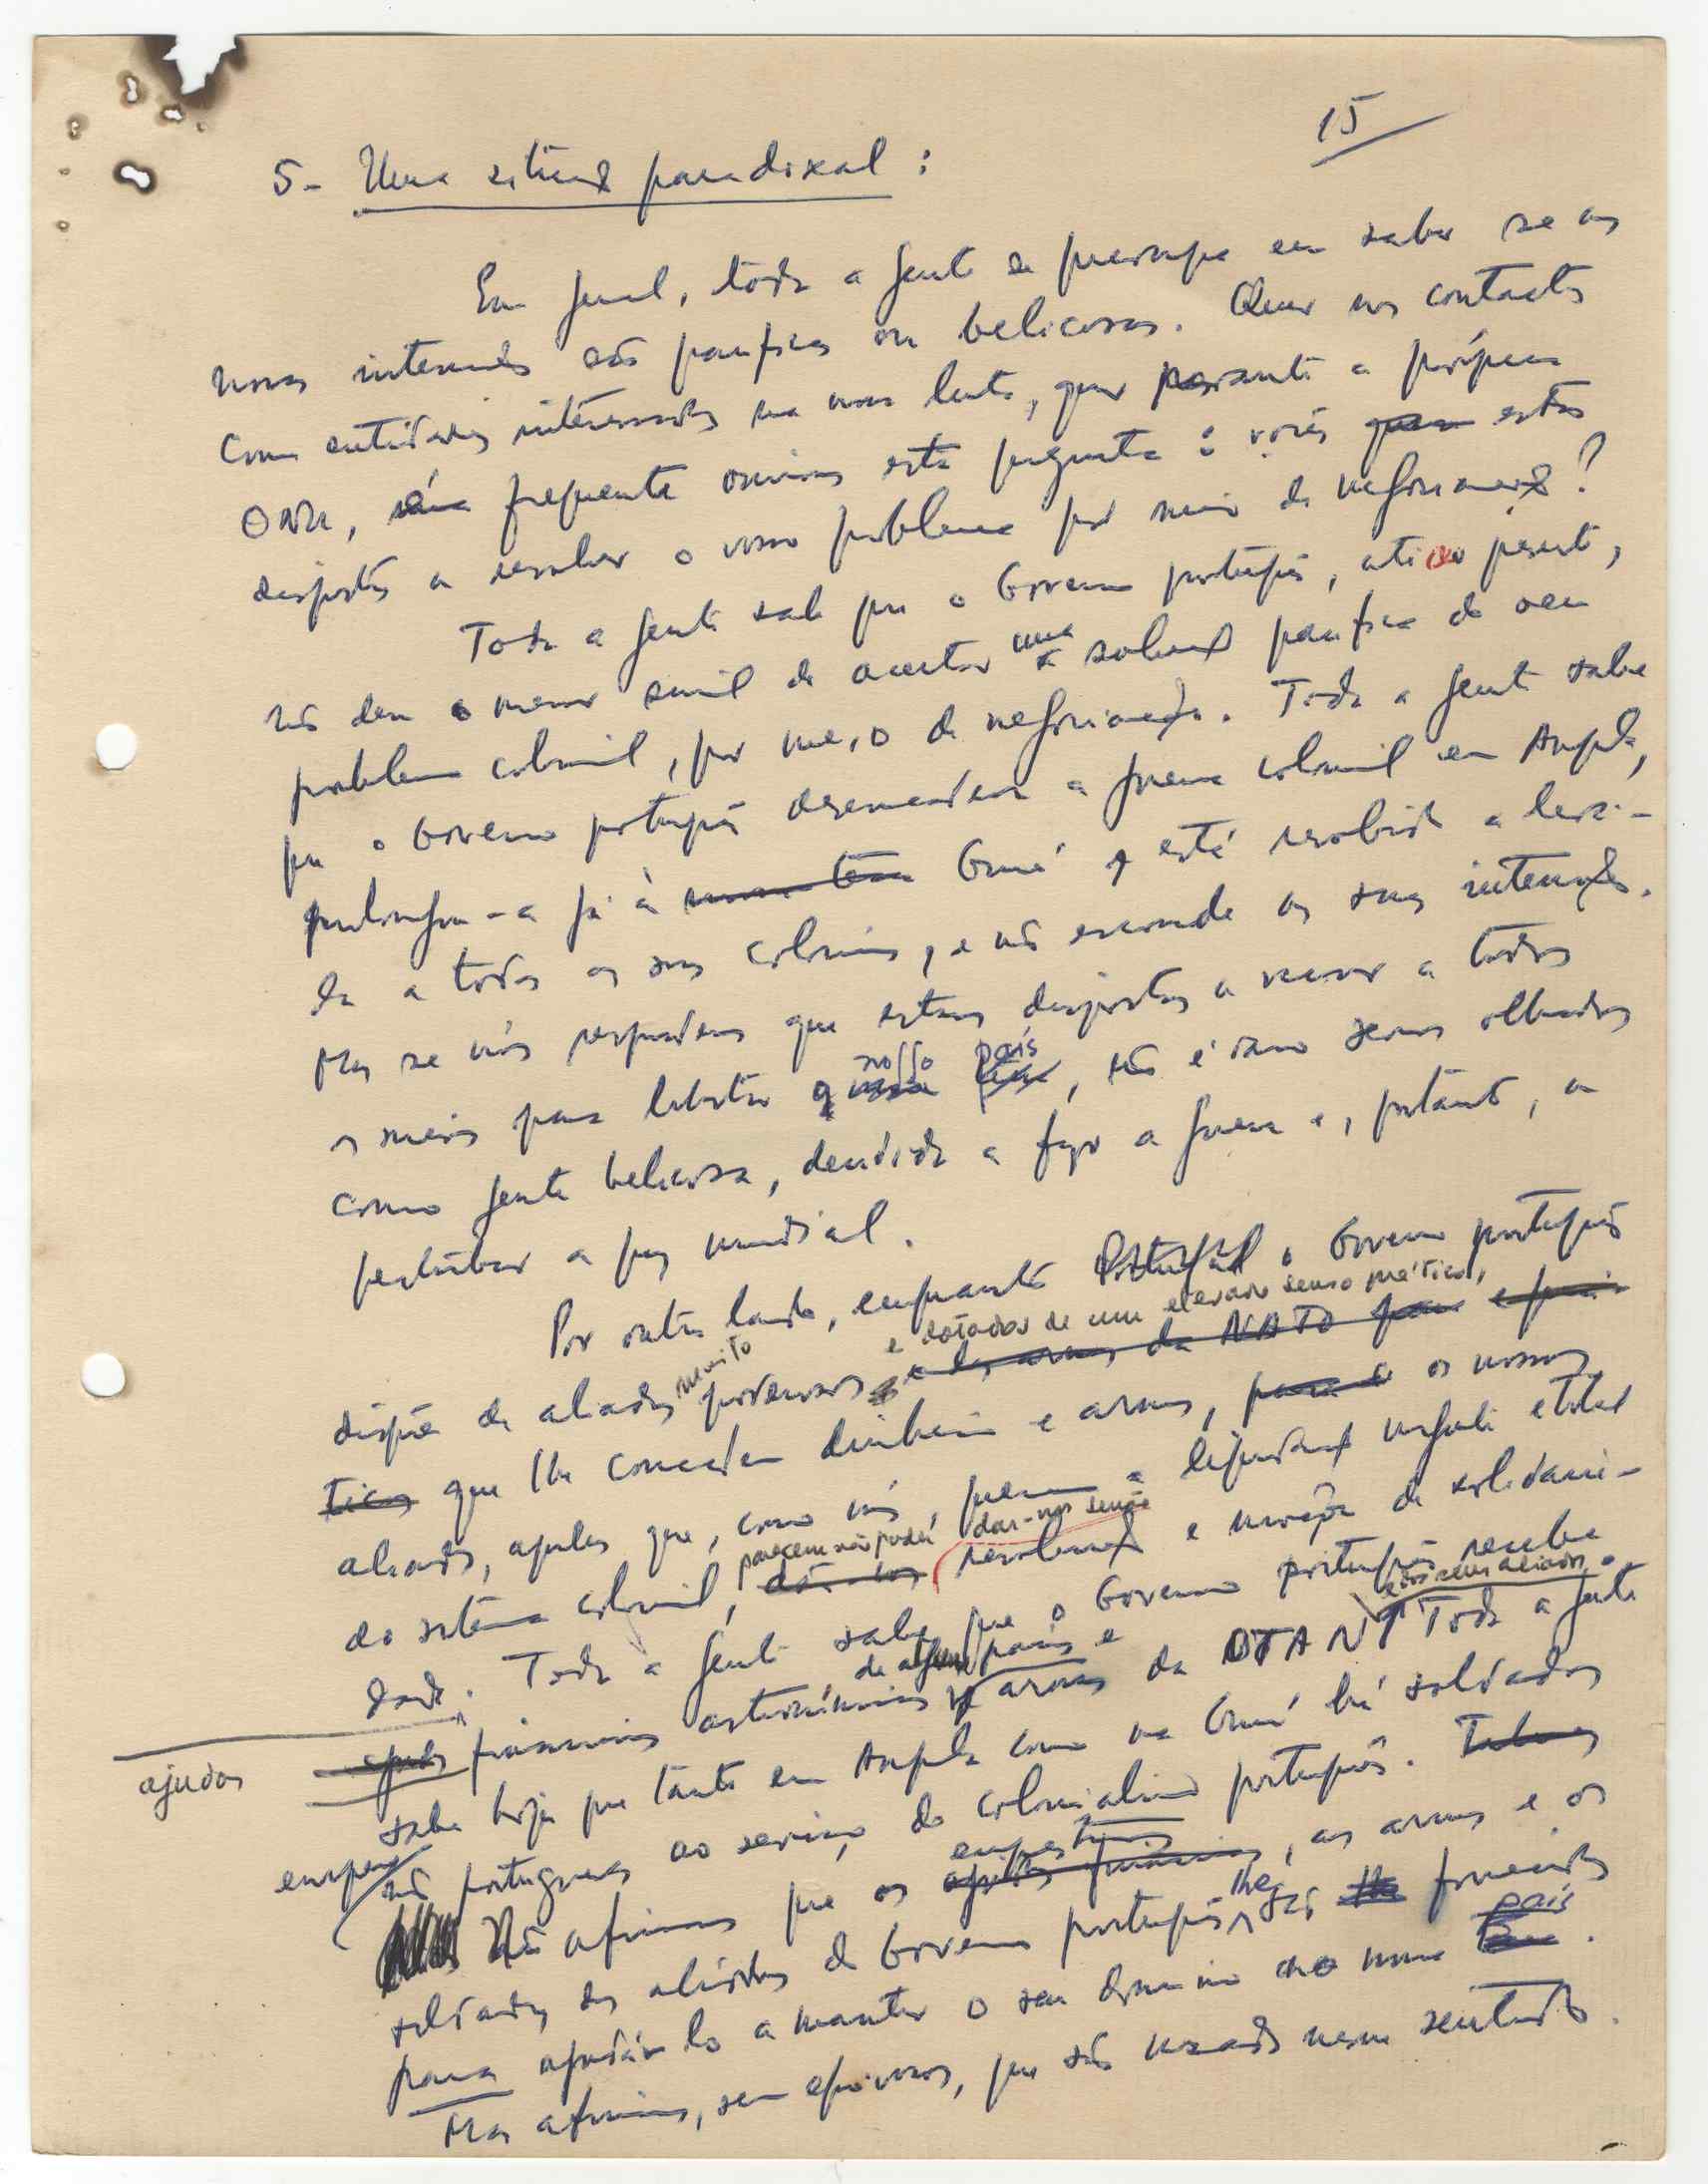 15
5- Uma situação paradoxal :
Em geral, toda a gente se preocupa em saber se as
nossas intenções são pacíficas ou belicosas. Quer nos contactos
com entidades interessadas na nossa luta, quer perante a própria
ONU, é frequente ouvirmos esta pergunta : vocês estão
dispostos a resolver o vosso problema por meio de negociações?
Toda a gente sabe que o Governo português, até ao presente,
não deu o menor sinal de aceitar uma solução pacífica do seu
problema colonial, por meio de negociações. Toda a gente sabe
que o Governo português desencadeou a guerra colonial em Angola,
prolongou-a já à Guiné e está resolvido a levá-
la a todas as suas colónias, e não esconde as suas intenções.
Mas se nós respondemos que estamos dispostos a recorrer a todos
os meios para libertar o nosso país, não é raro sermos olhados
como gente belicosa, decidida a fazer a guerra e, portanto, a
perturbar a paz mundial.
Por outro lado, enquanto Portugal o Governo português
e dotados de um elevado senso prático,
dispõe de aliados muito poderosos e das armas da NATO
ticos que lhe concedem dinheiro e armas, para o os nossos
aliados, aqueles que, como nós, querem a liquidação urgente e total
parecem não poder dar-nos senão
do sistema colonial, dão-nos resoluções e moções de solidarie-
dade. Toda a gente sabe que o Governo português recebe
de alguns países e
dos seus aliados
ajudas financeiras astronómicas e armas da OTAN. Toda a gente
sabe hoje que tanto em Angola como na Guiné há soldados
europeus não portugueses ao serviço do colonialismo português.
Não afirmamos que os empréstimos, as armas e os
soldados dos aliados do Governo português lhe são fornecidos
para ajudá-lo a manter o seu domínio no nosso país.
Mas afirmamos, sem equívocos, que são usados nesse sentido.